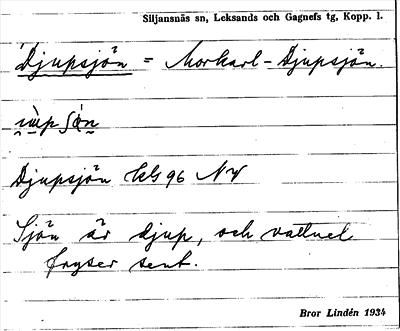 Siljansnäs sn, Leksands och Gagnefs tg, Kopp. l.
Djupsjön = Morkarl-Djupsjön.
Djupsjön 96 NV
Sjön är djup, och vattnet
fryser sent.
Bror Lindén 1934